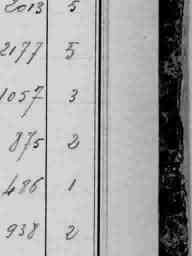 2013 5
2177 5
1057 3
875 2
486 1
938 2